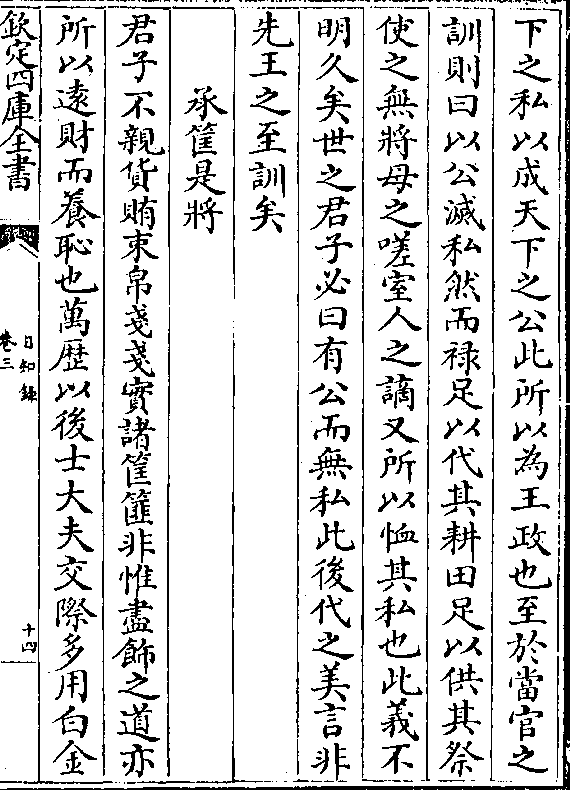 下之私以成天下之公此所以為王政也至於當官之
訓則曰以公滅私然而祿足以代其耕田足以供其祭
使之無將母之嗟室人之謫又所以恤其私也此義不
明久矣世之君子必曰有公而無私此後代之美言非
先王之至訓矣
承筐是將
君子不親貨賄束帛戔戔實諸筐篚非惟盡飾之道亦
所以遠財而養恥也萬歴以後士大夫交際多用白金
欽定四庫全書
日知錄
卷三
十四